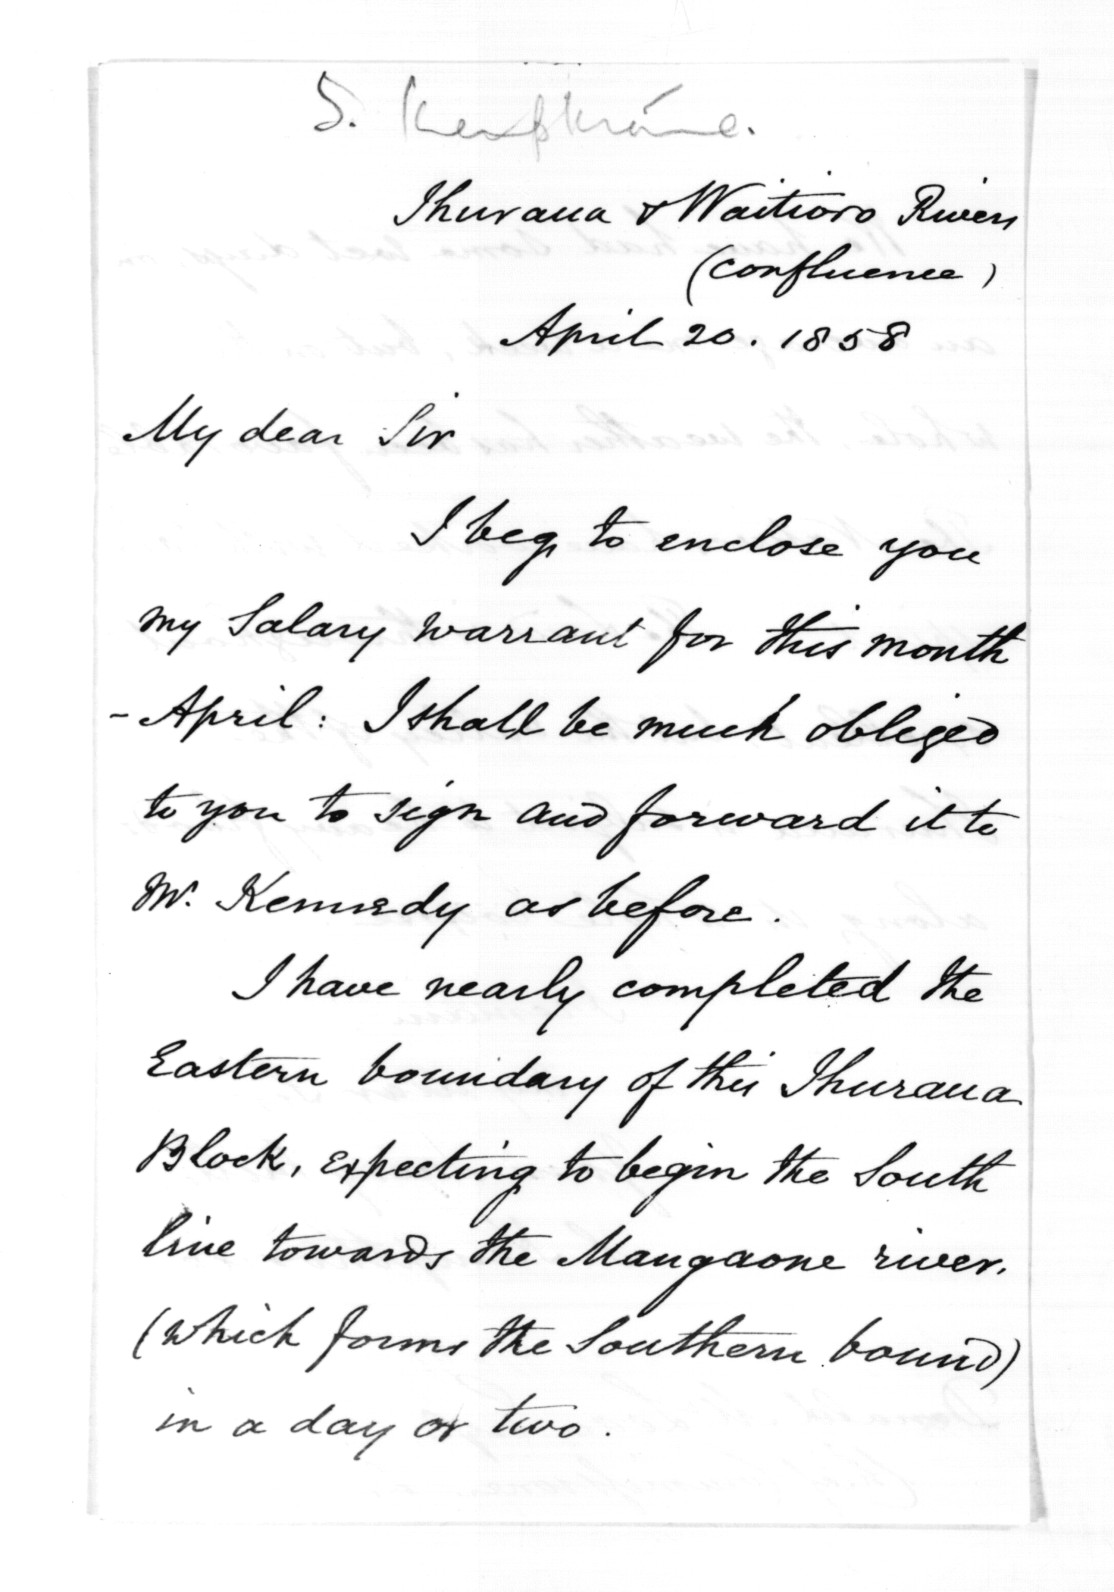 Ihuraua & Waitioro Rivers
(confluence)
April 20. 1858
My dear Sir
I beg to enclose you
my Salary warrant for this month
- April: I shall be much obliged
to you to sign and forward it to
Mr. Kennedy as before.
I have nearly completed the
Eastern boundary of this Ihuraua
Block, expecting to begin the South
line towards the Mangaone river.
(which forms the Southern bound)
in a day or two.